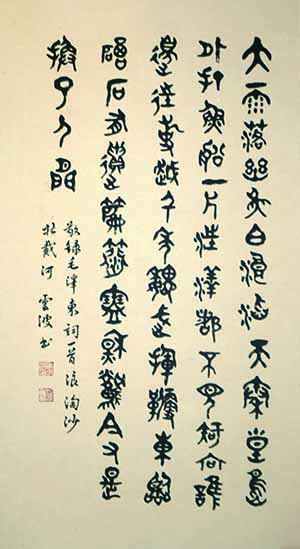 大雨落幽燕白浪滔天秦皇島
外打魚船一片汪洋都不見知向誰
邊往事越千年魏武揮鞭東臨
碣石有遺篇蕭瑟秋風今又是
換了人間
敬録毛澤東詞一首浪淘沙
北戴河 雲波书